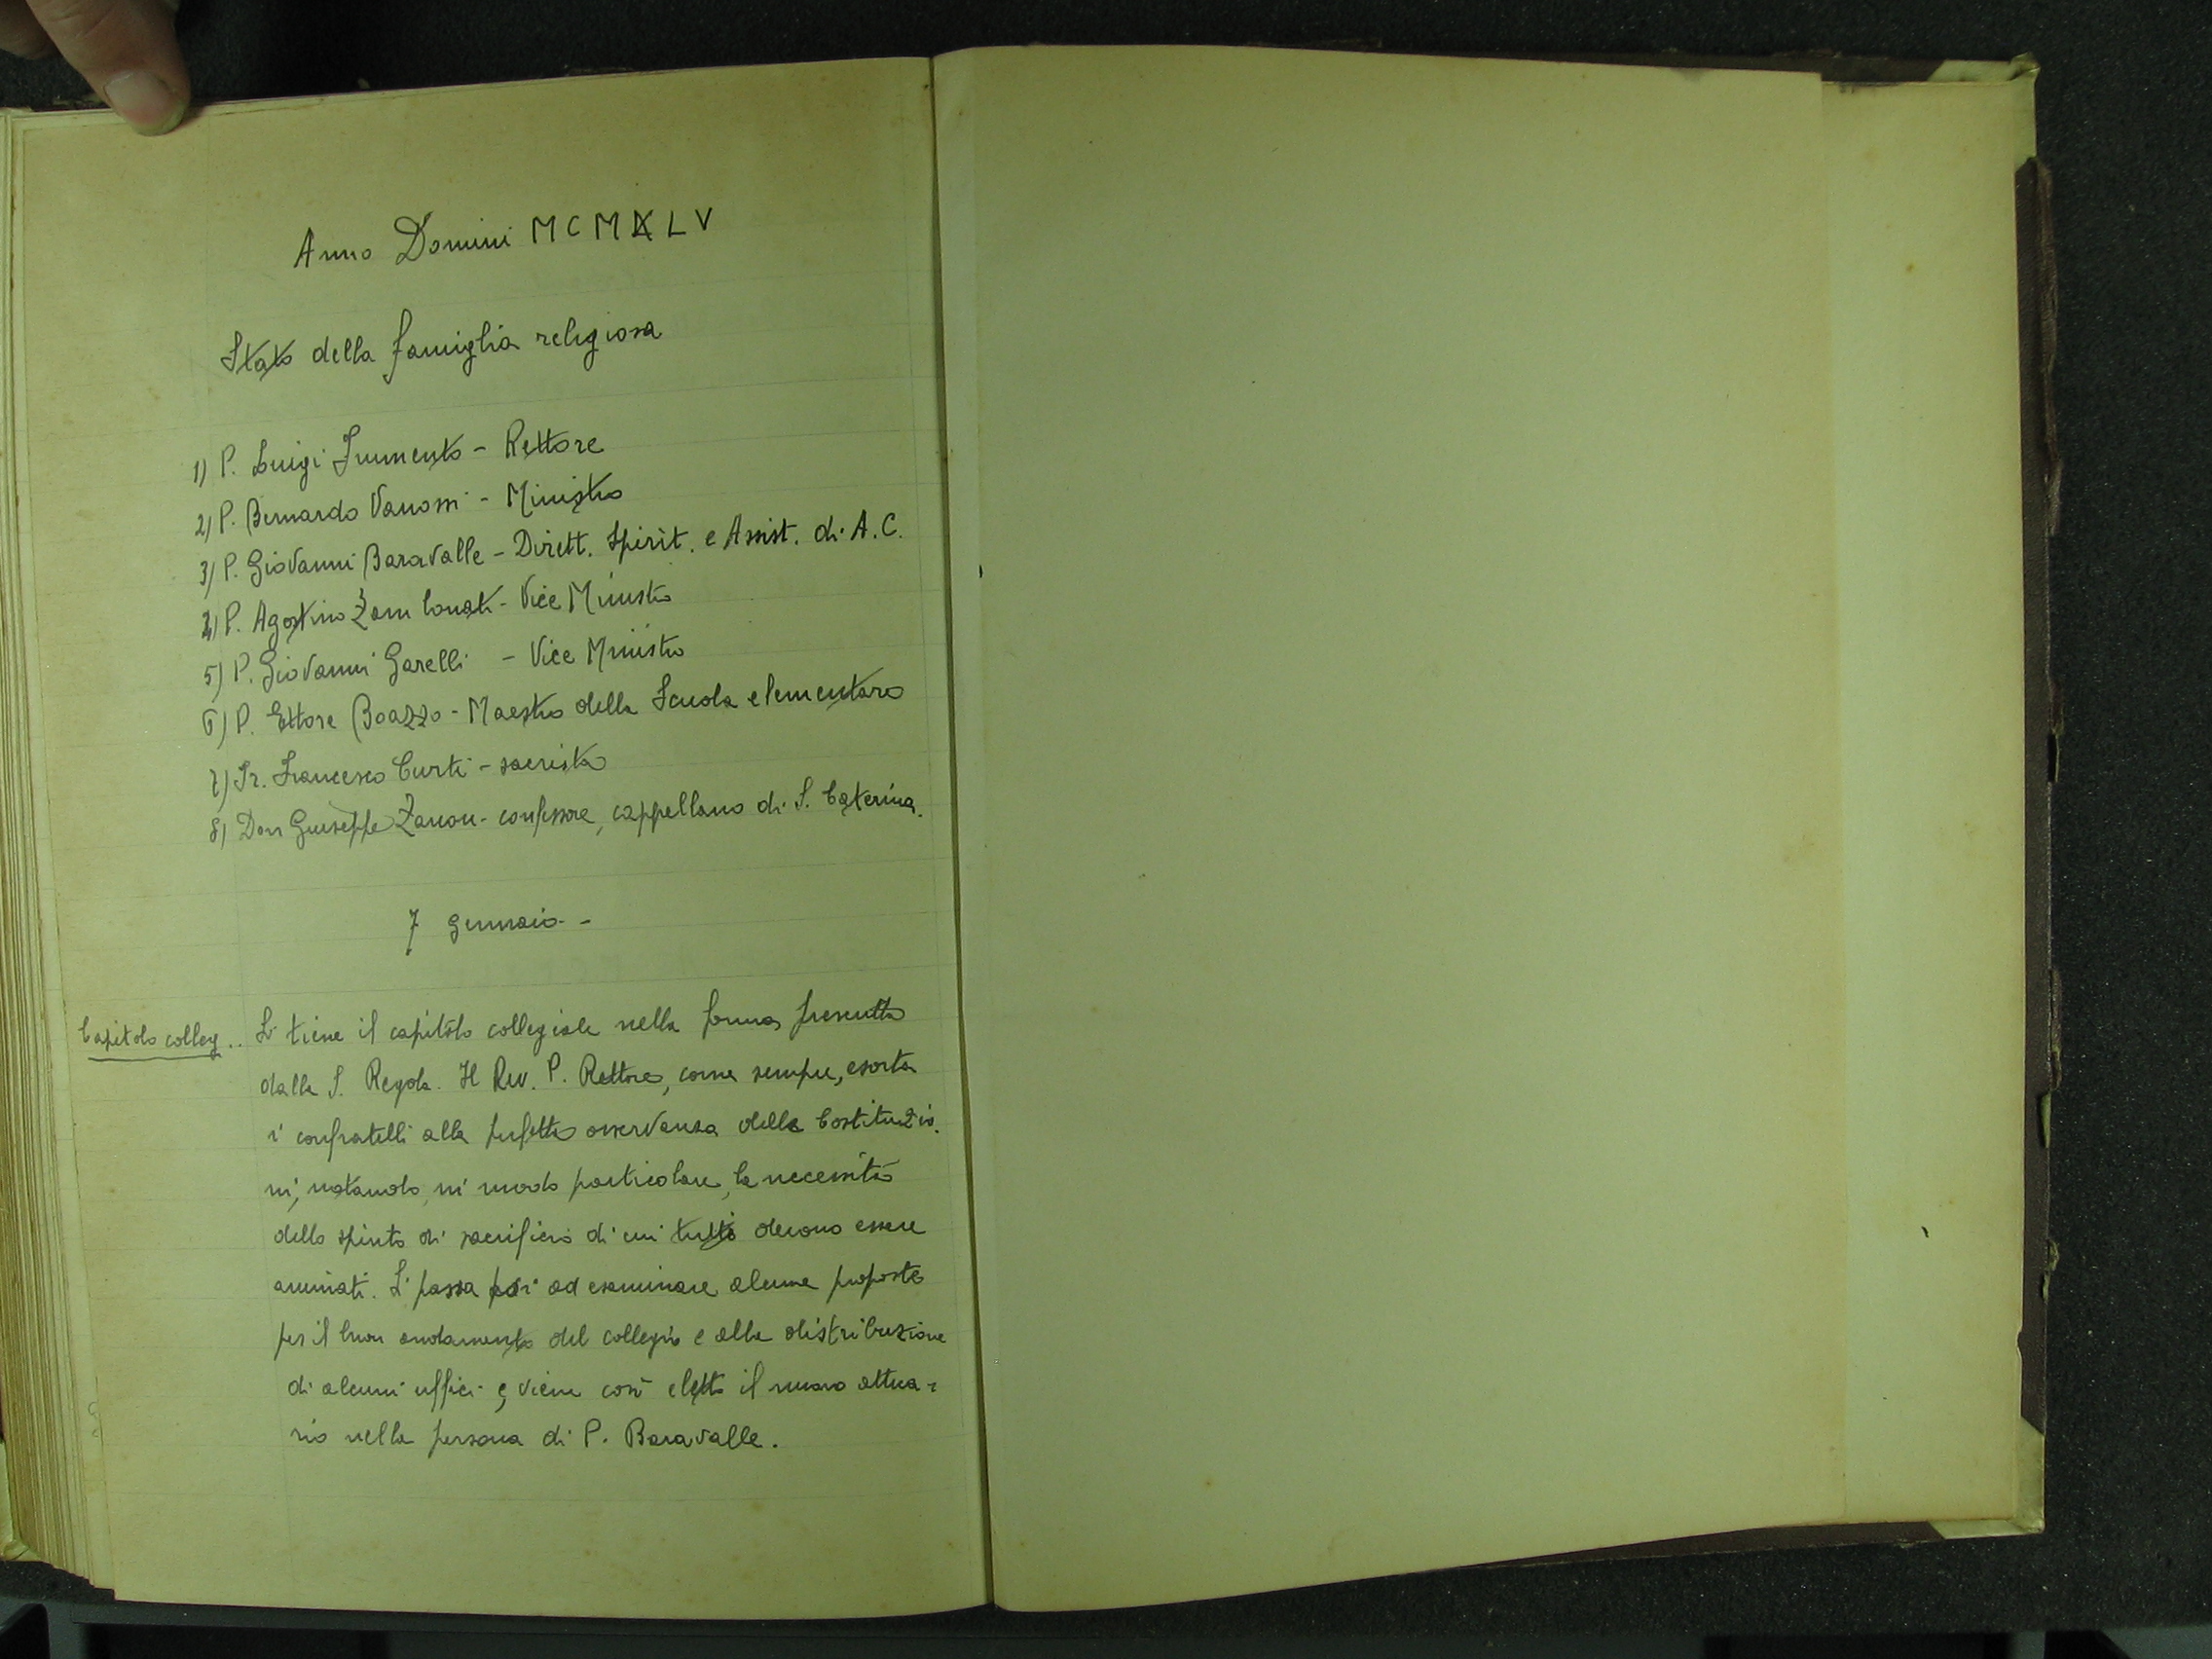 Anno Domini MCMXLV
Stato della famiglia religiosa
1) P. Luigi Frumento - Rettore
2) P. Bernardo Vanossi - Ministro
3) P. Giovanni Baravalle - Dirett. Spirit. e Assist. di A.C.
4) P. Agostino Zambonati - Vice Ministro
5) P. Giovanni Garelli - Vice Ministro
6) P. Ettore Boazzo - Maestro della Scuola elementare
7) Fr. Francesco Curti - sacrista
8) Don Giuseppe Zanon - confessore, cappellano di S. Caterina.
7 gennaio -
Capitolo colleg.. Si tiene il capitolo collegiale nella forma prescritta
dalla S. Regola. Il Rev. P. Rettore, come sempre, esorta
i confratelli alla perfetta osservanza delle Costituzio-
ni, notando, in modo particolare, la necessità
dello spirito di sacrificio di cui tutti devono essere
animati. Si passa poi ad esaminare alcune proposte
per il buon andamento del collegio e alla distribuzione
di alcuni uffici e viene così eletto il nuovo attua-
rio nella persona di P. Baravalle.